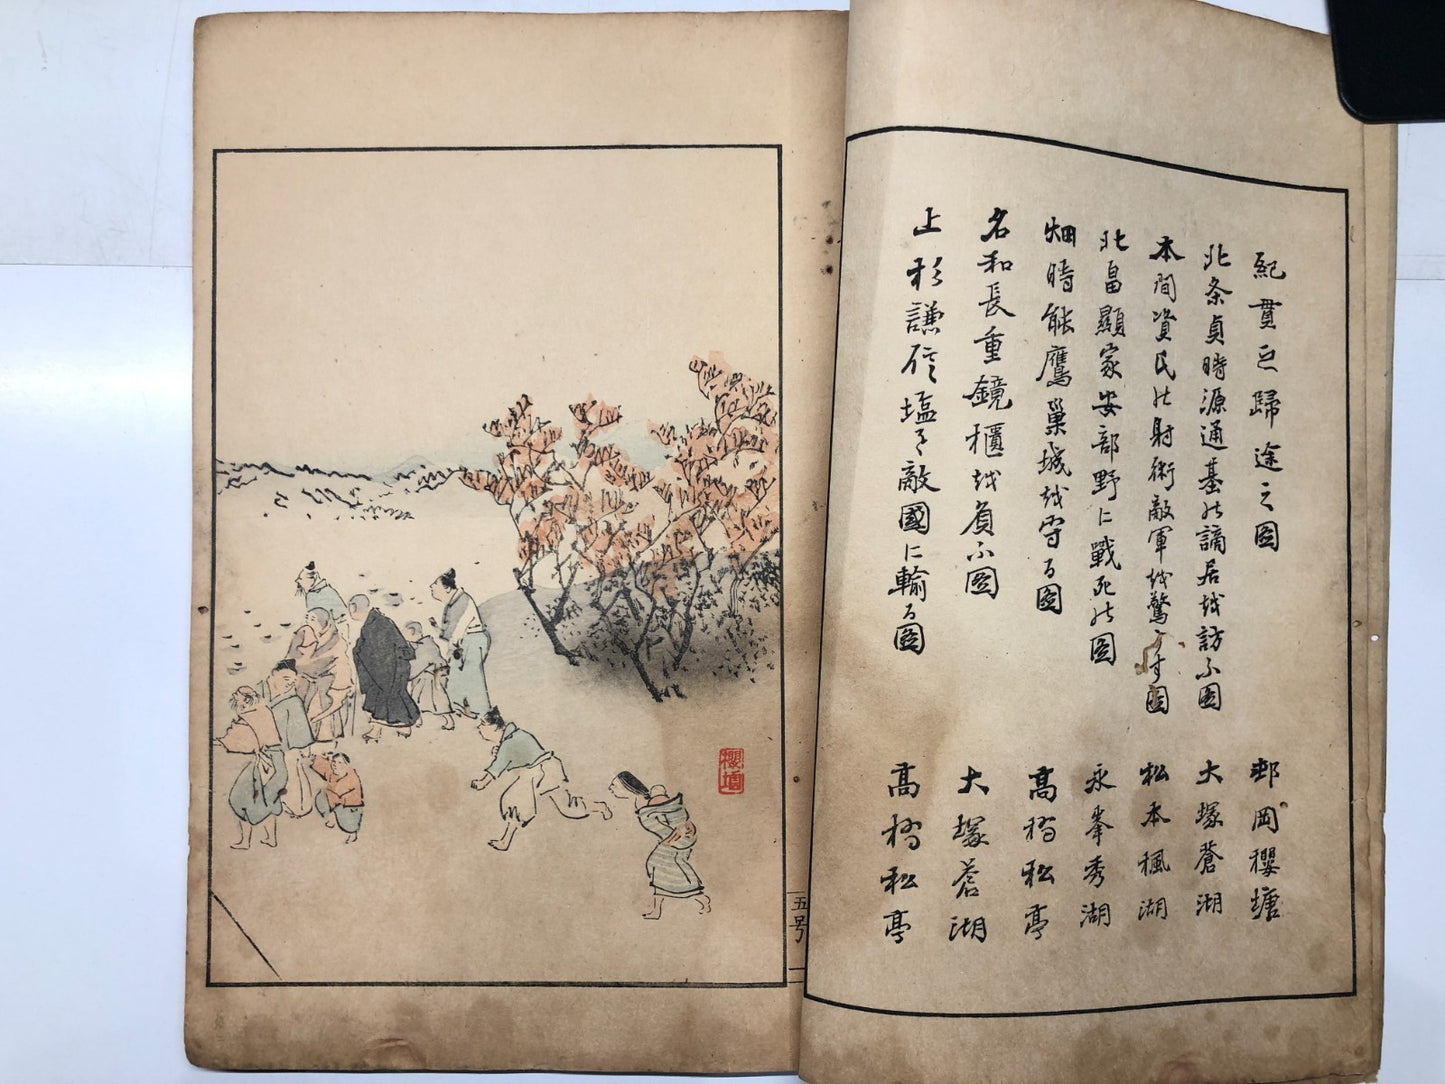 紀貫之歸途之圖 邨岡櫻塘
北条貞時源通基の謫居越訪ふ圖 大塚蒼湖
本間資氏の射術敵軍越驚かす圖 松本楓湖
北畠顯家安部野に戰死の圖 永峯秀湖
畑時能鷹巣城越守る圖 高橋松亭
名和長重鏡櫃越負ふ圖 大塚蒼湖
上杉謙信塩を敵國に輸る圖 高橋松亭
五号
櫻塘